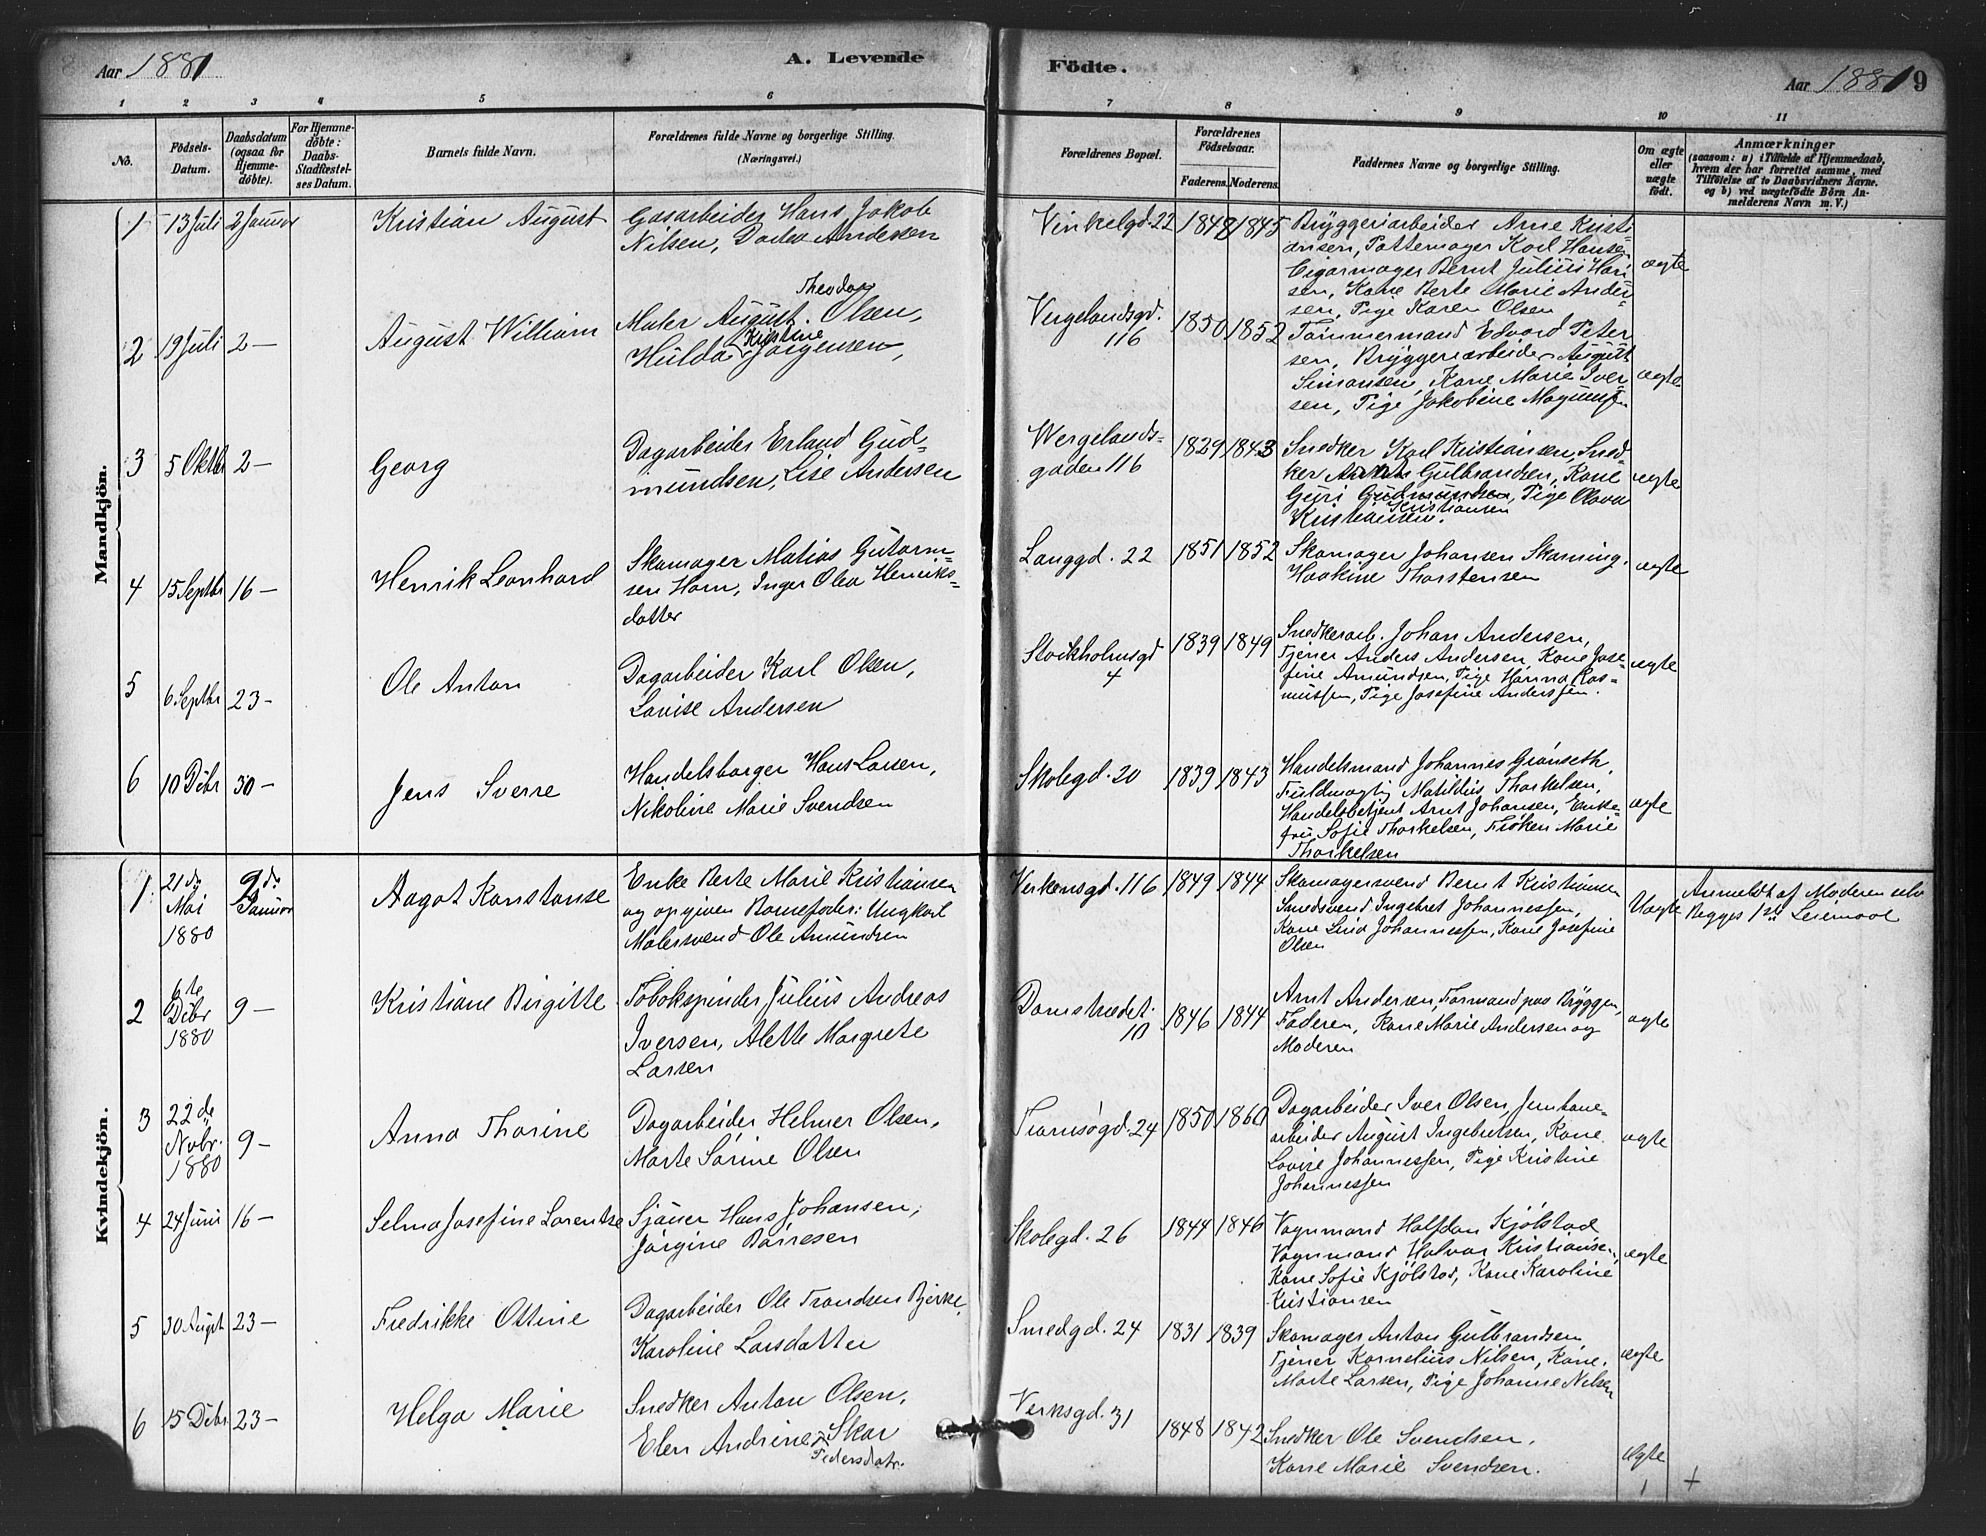 Aar 1881
A. Levende
Födte.
Aar 1881
9
1 2 3 4 5 6 7 8 9 10 11
No.
Födsels-
Datum.
Daabsdatum
(ogsaa for
Hjemme-
döbte).
For Hjemme-
döbte:
Daabs-
Stadfæstel-
ses Datum.
Barnets fulde Navn.
Forældrenes fulde Navne og borgerlige Stilling.
(Næringsvei.)
Forældrenes Bopæl.
Forældrenes
Födselsaar.
Faderens. Moderens.
Faddernes Navne og borgerlige Stilling.
Om ægte
eller
uægte
födt.
Anmærkninger
(saasom: a) i Tilfælde af Hjemmedaab,
hvem der har forrettet samme, med
Tilföielse af to Daabsvidners Navne.
og b) ved uægtefödte Börn An-
melderens Navn m. V.)
Mandkjön.
1 13 Juli 2 Januar
Kristian August
Gasarbeider Hans Jakob
Nilsen, Andersen
Vinkelgd. 22
1848 1845
Bryggeriarbeider Arne Kristi-
ansen, Pottemager Karl Hansen
Cigarmager Bernt Julius Han-
sen, Kone Berte Marie Ander-
sen, Pige Karen Olsen
ægte
2 19 Juli 2 —
August William
Theodor
Maler August Olsen,
Kristine
Hulda Jørgensen,
Vergelandsgd.
116
1850 1852
Tømmermand Edvard Peter
sen, Bryggeriarbeider August
Simonsen, Kone Marie Iver
sen, Pige Jakobine Magnussen
ægte
3 5 Oktbr 2 —
Georg
Dagarbeider Erland Gud-
mundsen, Lise Andersen
Wergelands-
gaden 116
1829 1843
Snedker Karl Kristiansen, Sned-
ker Anton Gulbrandsen, Kone
Guri Gudmundsen, Pige Olava
Kristiansen
Kristiansen.
ægte
4 15 Septbr 16 —
Henrik Leonhard
Skomager Matias Gutorm-
sen Horn, Inger Olea Henriks-
datter
Langgd. 22
1851 1852
Skomager Johansen Skarning.
Haakine Thorstensen
ægte
5 6 Septbr 23 —
Ole Anton
Dagarbeider Karl Olsen,
Lovise Andersen
Stockholmsgd
4
1839 1849
Snedkerarb. Johan Andersen,
Tjener Anders Andersen, Kone Jose-
fine Amundsen, Pige Hanna Ras-
mussen, Pige Josefine Anderssen.
ægte
6 10 Dcbr 30 —
Jens Sverre
Handelsborger Hans Larsen,
Nikoline Marie Svendsen
Skolegd. 20
1839 1843
Handelsmand Johannes Grønseth,
Fuldmægtig Matildius Thorkelsen,
Handelsbetjent Arnt Johansen, Enke-
fru Sofie Thorkelsen, Frøken Marie
Thorkelsen
ægte
Kvindekjön.
1 21 de
Mai
1880
2 de
Januar
Aagot Konstanse
Enke Berte Marie Kristiansen
og opgiven Barnefader: Ungkarl
Malersvend Ole Amundsen
Verkensgd. 116
1849 1844
Skomagersvend Bernt Kristiansen
Smedsvend Ingebret Johannessen,
Kone Lina Johannessen, Kone Josefine
Olsen
Uægte
Anmeldt af Moderen selv
Begges 1ste Leiermaal
2 6 te
Dcbr
1880
9 —
Kristiane Birgitte
Tobakspinder Julius Andreas
Iversen, Alette Margrete
Larsen
Damstrædet
10
1846 1844
Arnt Andersen, Formand paa Bryggen,
Faderen, Kone Marie Andersen og
Moderen
ægte
3 22 de
Novbr.
1880
9 —
Anna Thorine
Dagarbeider Helmer Olsen,
Marte Sørine Olsen
Tromsøgd. 24
1850 1860
Dagarbeider Iver Olsen, Jernbane-
arbeider August Ingebretsen, Kone
Lovise Johannessen, Pige Kristine
Johannessen
ægte
4 24 Juni 16 —
Selma Josefine Lorentze
Sjauer Hans Johansen,
Jørgine Børresen
Skolegd. 26
1844 1846
Vognmand Halfdan Kjølstad
Vognmand Halvor Kristiansen,
Kone Sofie Kjølstad, Kone Karoline
Kristiansen
ægte
5 30 Augst 23 —
Fredrikke Ottine
Dagarbeider Ole Trondsen Bjerke,
Karoline Larsdatter
Smedgd. 24
1831 1839
Skomager Anton Gulbrandsen,
Tjener Kornelius Nilsen, Kone
Marte Larsen, Pige Johanne Nilsen
ægte
6 15 Dcbr 23 —
Helga Marie
Snedker Anton Olsen,
Elen Andrine Skar
Pedersdatr.
Verksgd. 31
1848 1842
Snedker Ole Svendsen,
Kone Marie Svendsen.
ægte